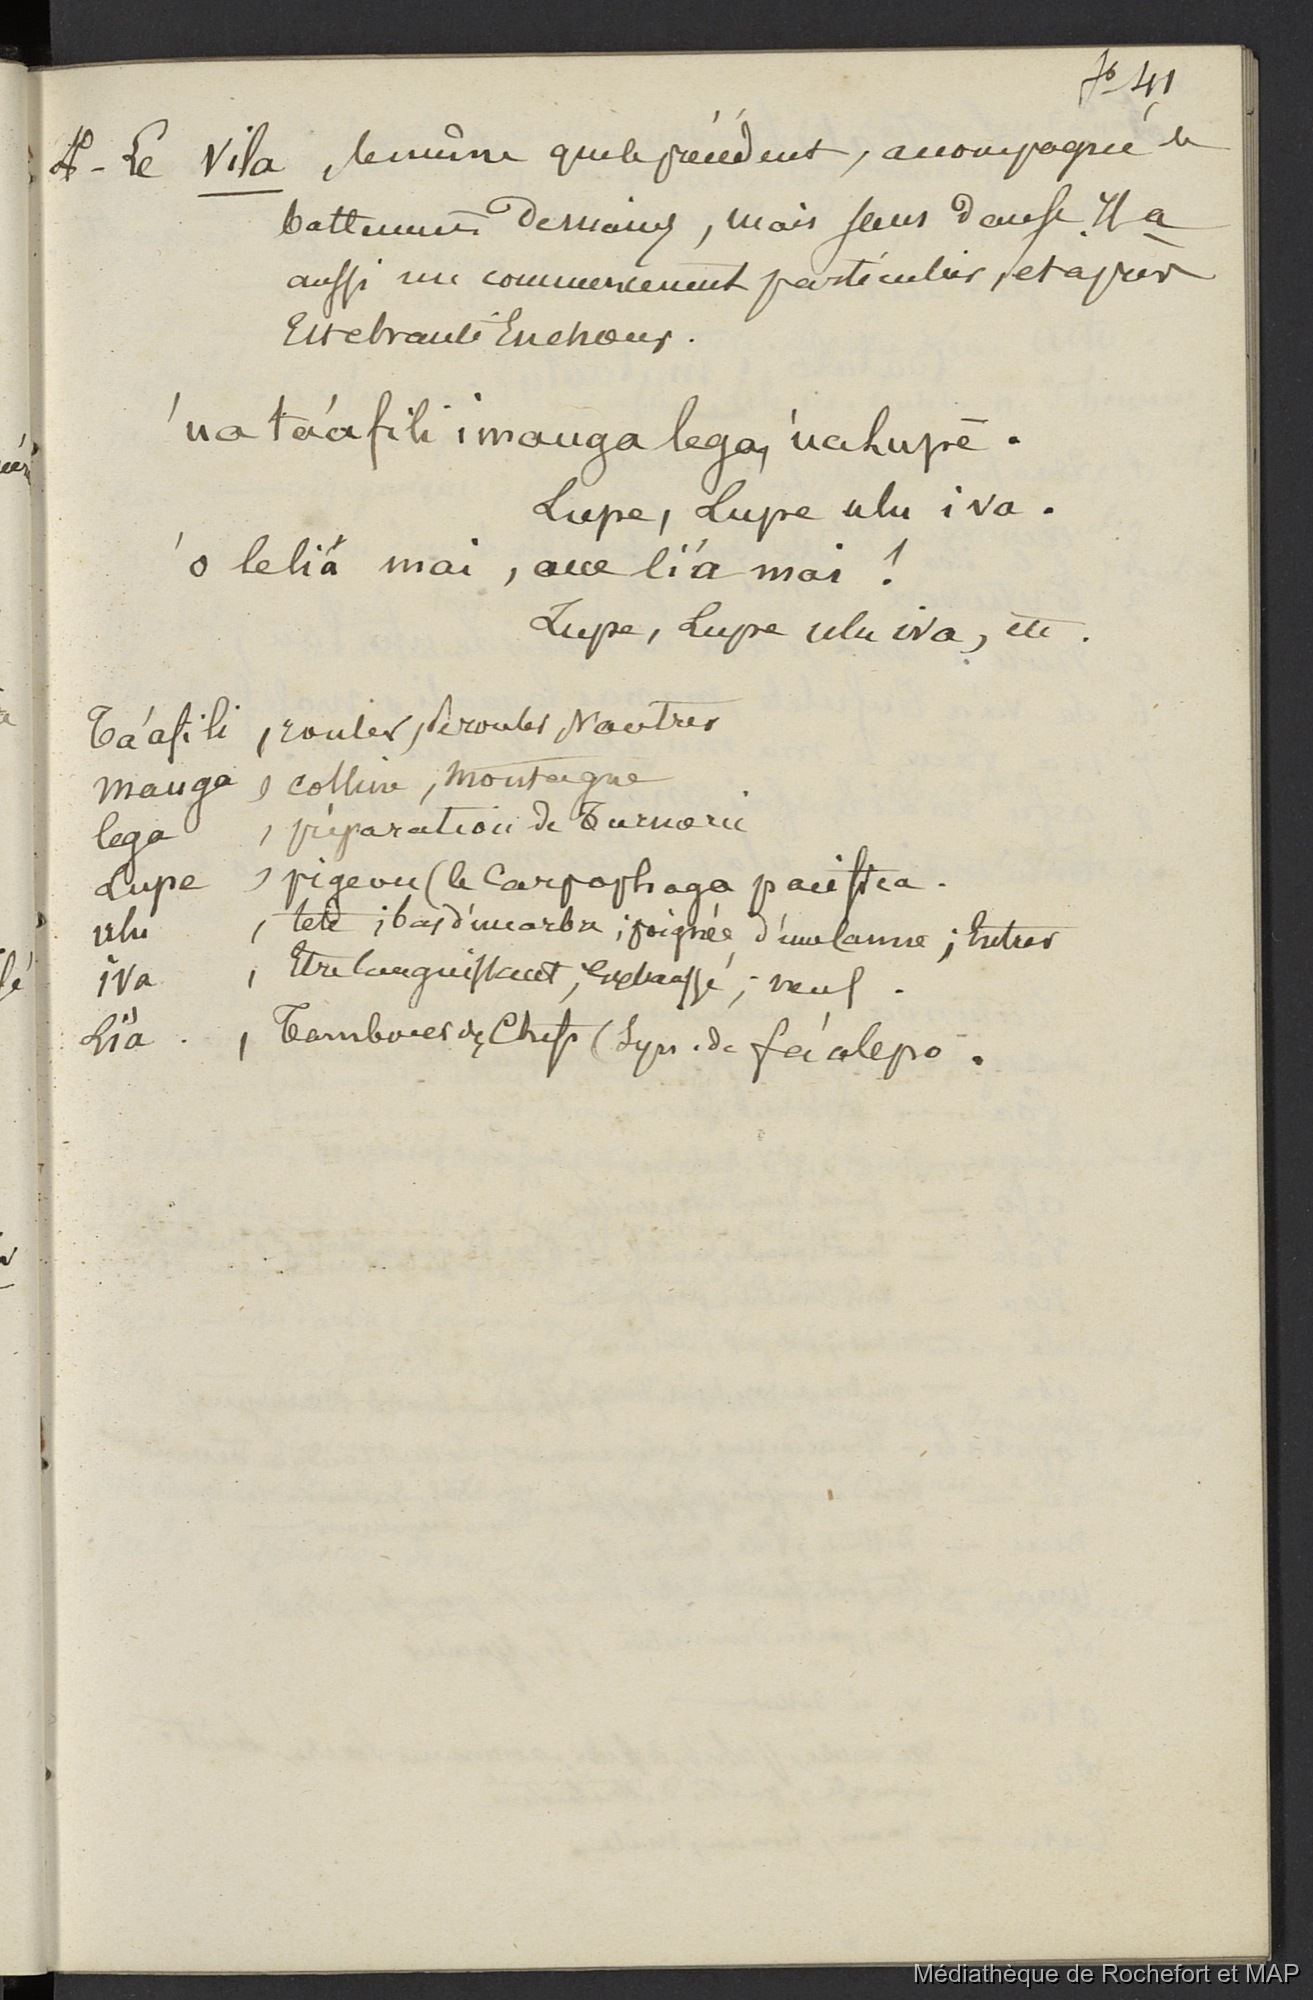 fo 41
4- Le Vila, le même que le précédent, accompagné de
battements de mains, mais sans danse. Il a
aussi un commencement particulier, et après
Est chanté En chœur.
'ua ta'afili i mauga lega, 'ua lupe.
Lupe, Lupe ulu iva.
'o le li'a mai, aue li'a mai !
Lupe, Lupe ulu iva, etc.
Ta'afili, rouler, dérouler, Vautrer
mauga, colline, montagne
lega, préparation de Turmeric
Lupe, pigeon (le Carpophaga pacifica.
ulu, tête ; bas d'un arbre ; poignée d'une canne ; Entrer
iva, Etre languissant, ; veuf.
Li'a., Tambour des Chefs (Syn. de fa'alepo.
Médiathèque de Rochefort et MAP